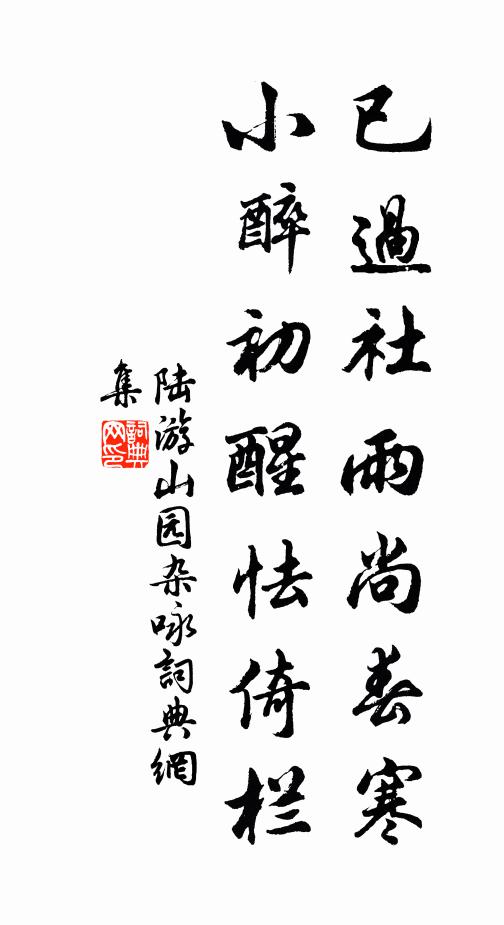 已過社雨尚春寒
小醉初醒怯倚栏
陆游山园杂咏詞典網
集
詞典网印